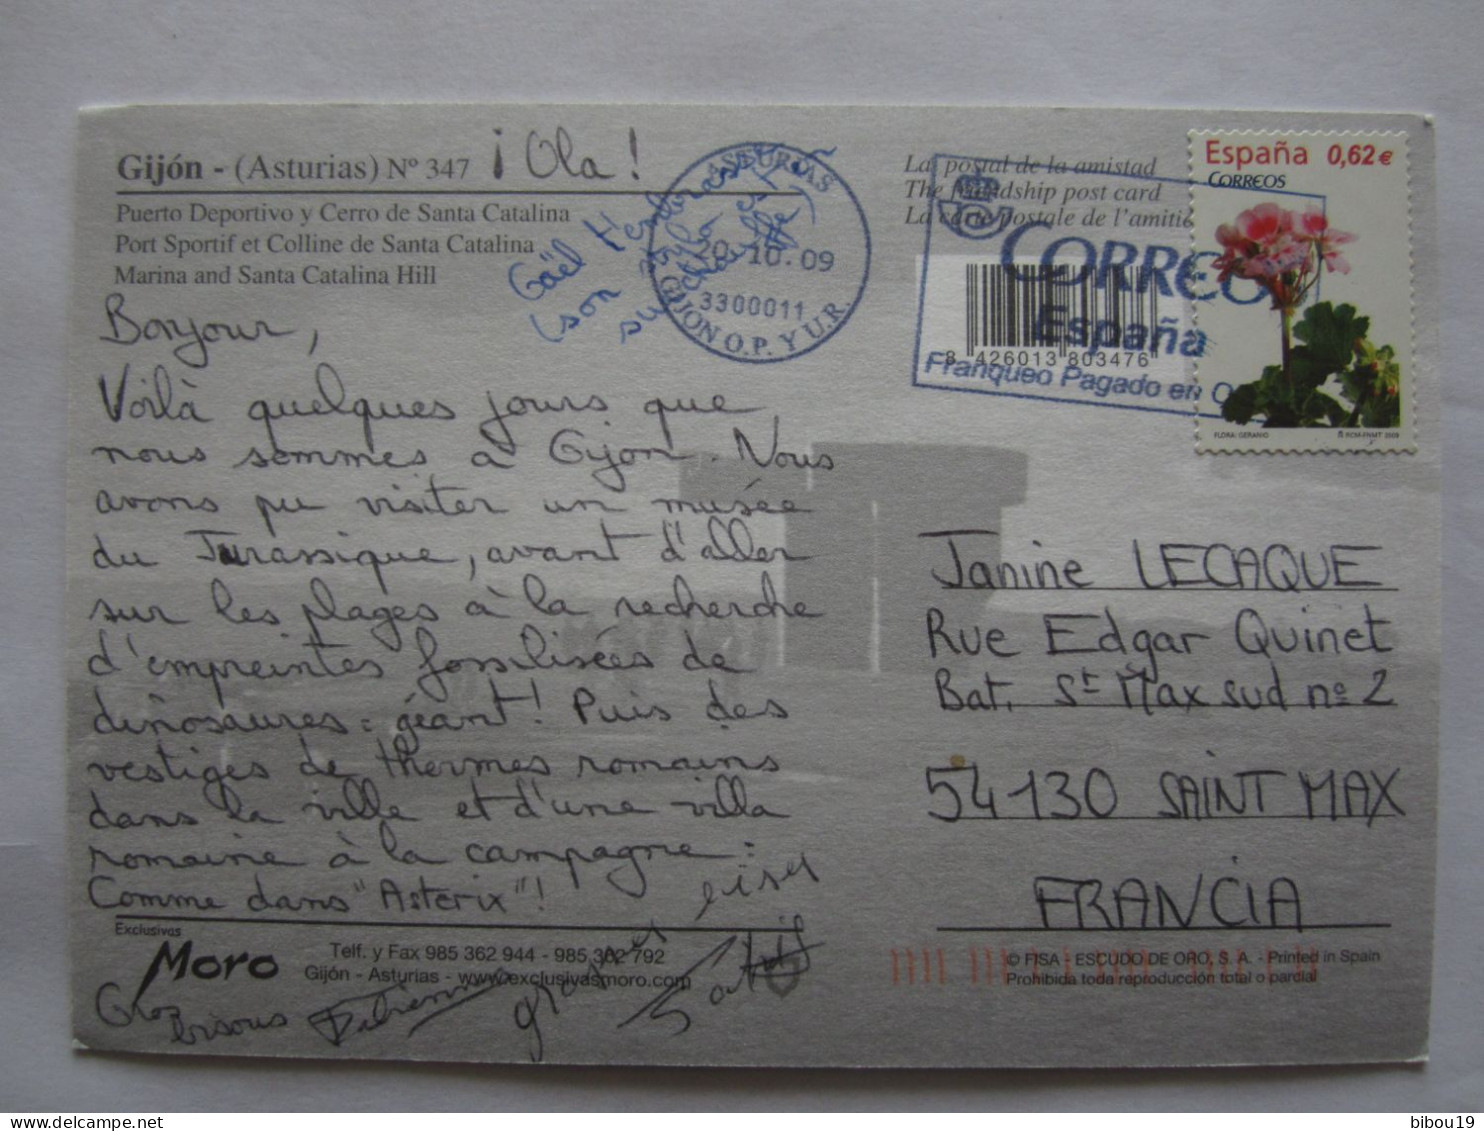 Gijón - (Asturias) Nº 347
¡ Ola !
Puerto Deportivo y Cerro de Santa Catalina
Port Sportif et Colline de Santa Catalina
Marina and Santa Catalina Hill
Gaël t'embrasse
(son
ASTURIAS
20. 10. 09
3300011
GIJON O.P. Y U.R.
La postal de la amistad
The friendship post card
La carte postale de l'amitié
CORREOS
España
Franqueo Pagado en O
8 426013 803476
España 0,62 €
CORREOS
FLORA: GERANIO
RCM-FNMT 2009
Bonjour,
Voilà quelques jours que
nous sommes à Gijon. Nous
avons pu visiter un musée
du Jurassique, avant d'aller
sur les plages à la recherche
d'empreintes fossilisées de
dinosaures : géant ! Puis des
vestiges de thermes romains
dans la ville et d'une villa
romaine à la campagne :
Comme dans "Asterix" !
Janine LECAQUE
Rue Edgar Quinet
Bat. St Max sud nº 2
54130 SAINT MAX
FRANCIA
Exclusivas
Moro
Telf. y Fax 985 362 944 - 985 362 792
Gijón - Asturias - www.exclusivasmoro.com
Gros
bisous
© FISA - ESCUDO DE ORO, S. A. - Printed in Spain
Prohibida toda reproducción total o parcial
bibou19